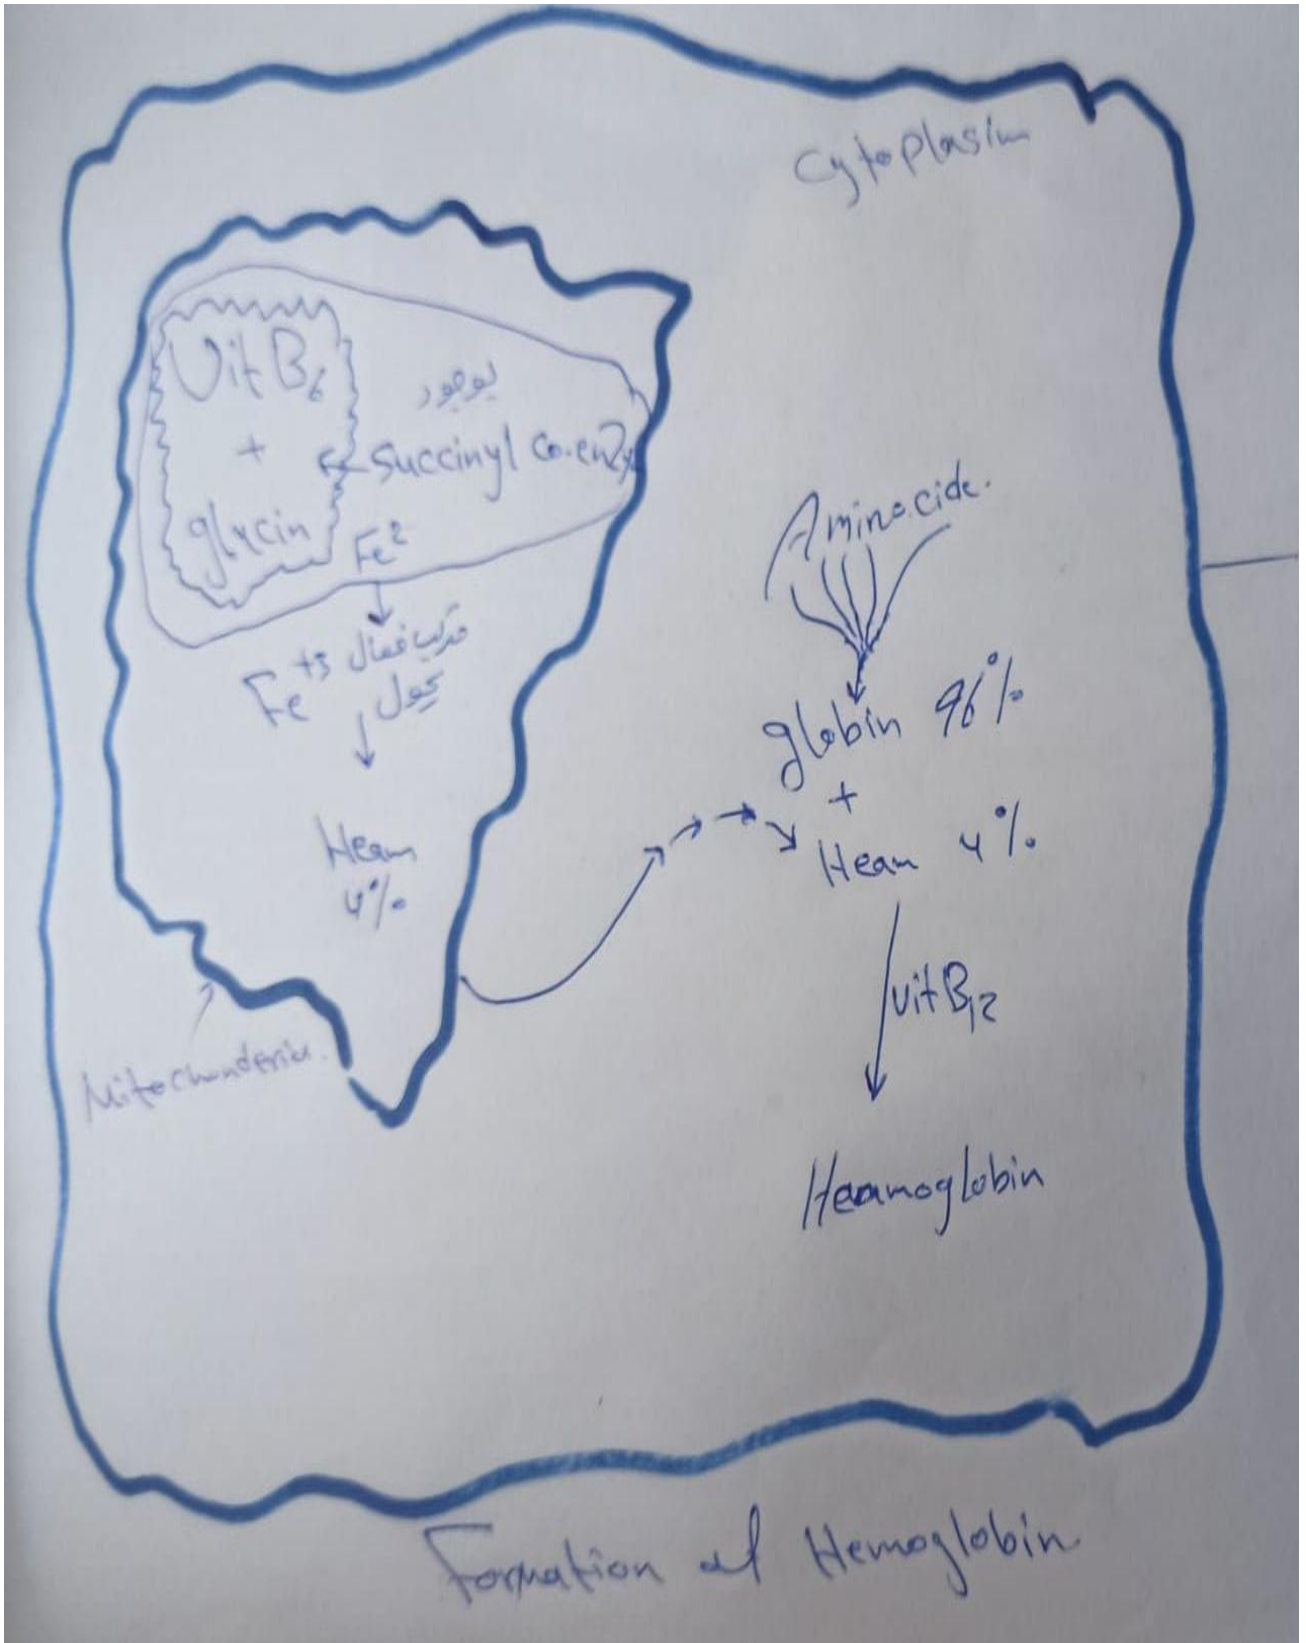 Cytoplasim
Vit B6
+
glycin
بوجود
succinyl Co.enzy
Fe2
Fe+3 مركب فعال
يحول
Heam
4%
Mitochonderia.
Aminoacide.
globin 96%
+
Heam 4%
vit B12
Heamoglobin
Formation of Hemoglobin